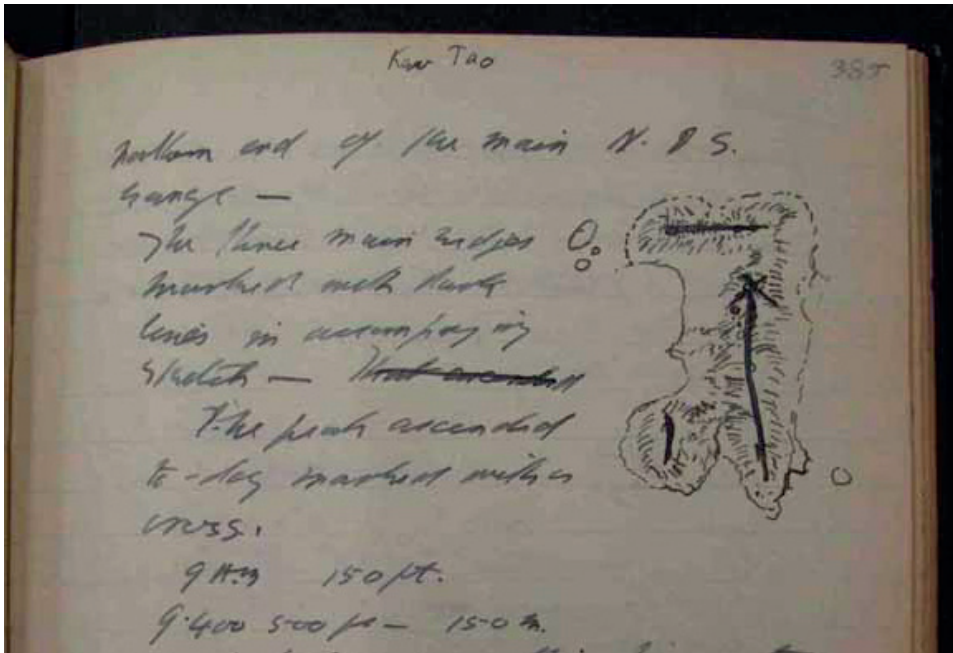 Kaw Tao
385
northern end of the main N. & S.
range —
The three main ridges
marked with dark
lines in accompanying
sketch — That ascended
The peak ascended
to-day marked with a
cross.
9 A.m 150 ft.
9.40 500 ft — 150 m.